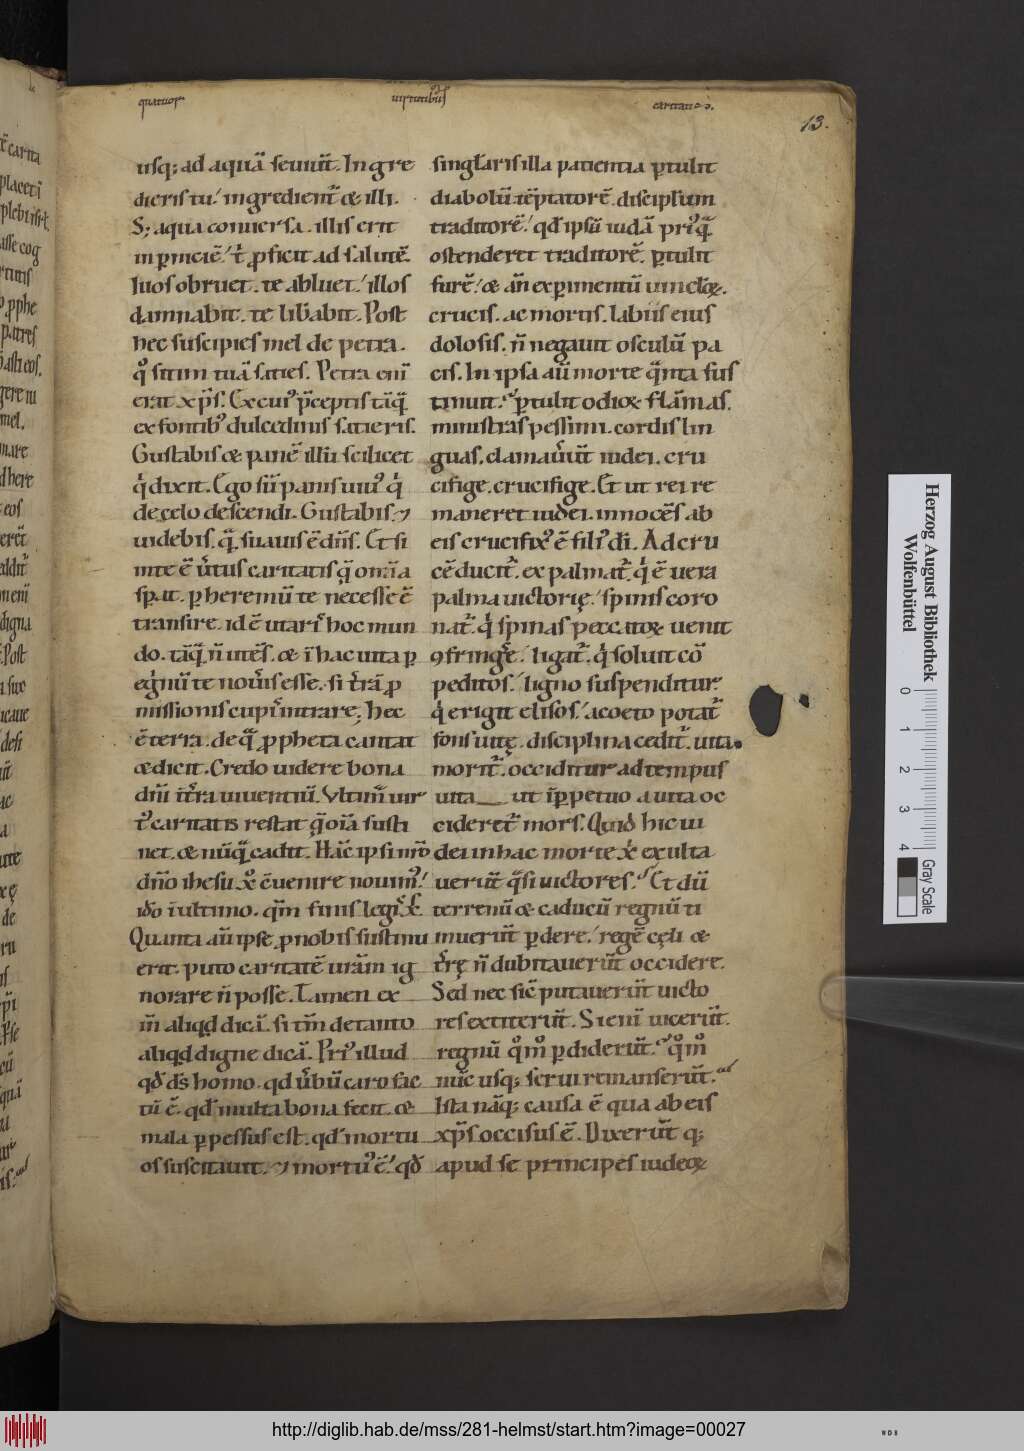 quatuor
uirtutibus
caritatis
13.
usq; ad aquā seuiūt. Ingre
dieris tu / ingredient̄ & illi.
S; aqua conuersa. illis erit
in pniciē / t̄ pficit ad salutē.
Iuos obruet. te abluet / illos
damnabit. te lib̄abit. Post
hec suscipies mel de petra.
qͦ sitim tuā saties. Petra eni
erat xp̄s. Ex cuiꝰ p̄ceptis tāq̄
ex fontibꝰ dulcedinis satieris.
Gustabis & panē illū scilicet
q̇ dixit. Ego sū panis uiuꝰ q̇
de celo descendi. Gustabis ⁊
uidebis. q̄ suauis ē dn̄s. Et si
in te ē uͥtus caritatis q̄ om̄ia
spat. p heremū te necesse ē
transire. id ē utariͥ hoc mun
do. tāq̄ n̄ utēs. & ī hac uita p
egͥnū te noūis esse. si tͥrā p
missionis cupiͥ intrare; hec
ē terra. de q̄ ppheta cantat
& dicit. Credo uidere bona
dn̄i ī tͥra uiuentiū. Vltim̄ uir
tꝰ caritatis restat q̄ oīa susti
net. & nūq̄ cadit. Hāc ipsi nr̄o
dn̄o ihesu xͦ ēuenire nouimꝰ /
ido ī ultimo. qm̄ finis legiͥ xͨ.
Quanta aū ipse p nobis sustinu
erit. puto caritatē urām ig
norare n̄ posse. Tamen ex
m̄ aliqd dicā. si tm̄ de tanto
aliqd digne dicā. Priͥ illud
qđ ds̄ homo. qd uͥbū caro fac
tū ē. qđ multa bona fecit. &
mala ppessus est. qđ mortu
os suscitauit. ⁊ mortuꝰ ē / qđ
singlaris illa patientia ptulit
diabolū tēptatorē. discipłum
traditorē / qđ ipsū iudā priꝰq̄
ostenderet traditorē. ptulit
furē / & an̄ expimentū uinclꝝ.
crucis. ac mortis. labiis eius
dolosis. n̄ negauit osculū pa
cis. In ipsa aū morte q̄nta sus
tinuit. ptulit odioꝝ flāmas.
ministras pessimi. cordis lin
guas. clamaūūt iudei. cru
cifige. crucifige. Et ut rei re
maneret iudei. innocēs ab
eis crucifixꝰ ē filiꝰ di. Ad cru
cē ducit̄. expalmat̄. q̇ ē uera
palma uictorię / spinis coro
nat̄. q̇ spinas peccatoꝝ uenit
ꝯfringͤe / ligat̄. q̇ soluit cō
peditos / ligno suspenditur.
q̇ erigit elisos / acoeto potat̄
fons uitę. disciplina cedit̄. uita
morit̄. occiditur ad tempus
uita ut īppetuo a uita oc
cideret̄ mors. Quid hic iu
dei in hac morte xͥ exulta
uerūt q̄si uictores. Et dū
terrenū & caducū regnū ti
muerūt pdere / regē cęli &
tͥrę n̄ dubitauerūt occidere.
Sed nec sic̄ putauerūt uicto
res extiterūt. Si eni uicerūt.
regnū qͦmͦ pdiderūt. qͦmͦ
nūc usq; serui remanserūt.
Ista nāq; causa ē qua ab eis
xp̄s occisus ē. Dixerūt q;
apud se principes iudeoꝝ
Herzog August Bibliothek
Wolfenbüttel
0 1 2 3 4
Gray Scale
http://diglib.hab.de/mss/281-helmst/start.htm?image=00027